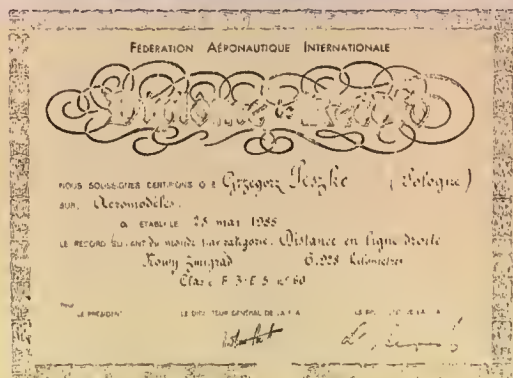 FÉDÉRATION AÉRONAUTIQUE INTERNATIONALE
NOUS SOUSSIGNÉS CERTIFIONS QUE Grzegorz Peszke (Pologne)
SUR Aeromodèles.
A ÉTABLI LE 25 mai 1985
LE RECORD SUIVANT du monde par catégorie. Distance en ligne droite
Nowy Żmigrad 6.928 Kilomètres
Classe F 3-E S n° 60
LE PRÉSIDENT LE DIRECTEUR GÉNÉRAL DE LA F A